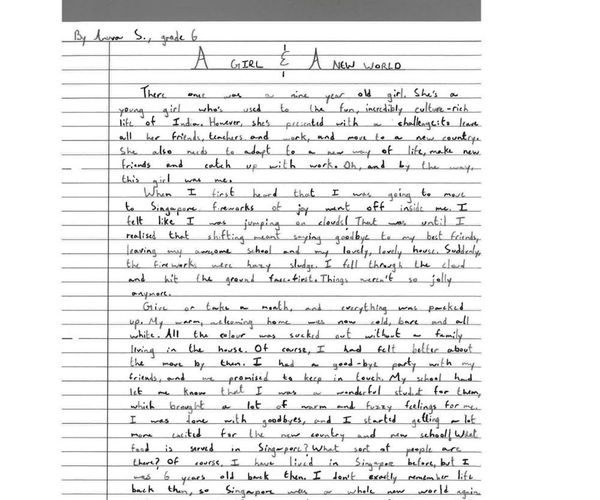 By S., grade 6
A GIRL & A NEW WORLD
There once was a nine year old girl. She's a
young girl who's used to the fun, incredibly culture-rich
life of India. However, she's presented with a challenge: to leave
all her friends, teachers and work, and move to a new country.
She also needs to adapt to a new way of life, make new
friends and catch up with work. Oh, and by the way,
this girl was me.
When I first heard that I was going to move
to Singapore fireworks of joy went off inside me. I
felt like I was jumping on clouds! That was until I
realised that shifting meant saying goodbye to my best friends,
leaving my awesome school and my lovely, lovely house. Suddenly,
the fireworks were hazy sludge. I fell through the cloud
and hit the ground face-first. Things weren't so jolly
anymore.
Give or take a month, and everything was packed
up. My warm, welcoming home was now cold, bare and all
white. All the colour was sucked out without a family
living in the house. Of course, I had felt better about
the move by then. I had a good-bye party with my
friends, and we promised to keep in touch. My school had
let me know that I was a wonderful student for them,
which brought a lot of warm and fuzzy feelings for me.
I was done with goodbyes, and I started getting a lot
more excited for the new country and new school! What
food is served in Singapore? What sort of people are
there? Of course, I have lived in Singapore before, but I
was 6 years old back then. I don't exactly remember life
back then, so Singapore was a whole new world again